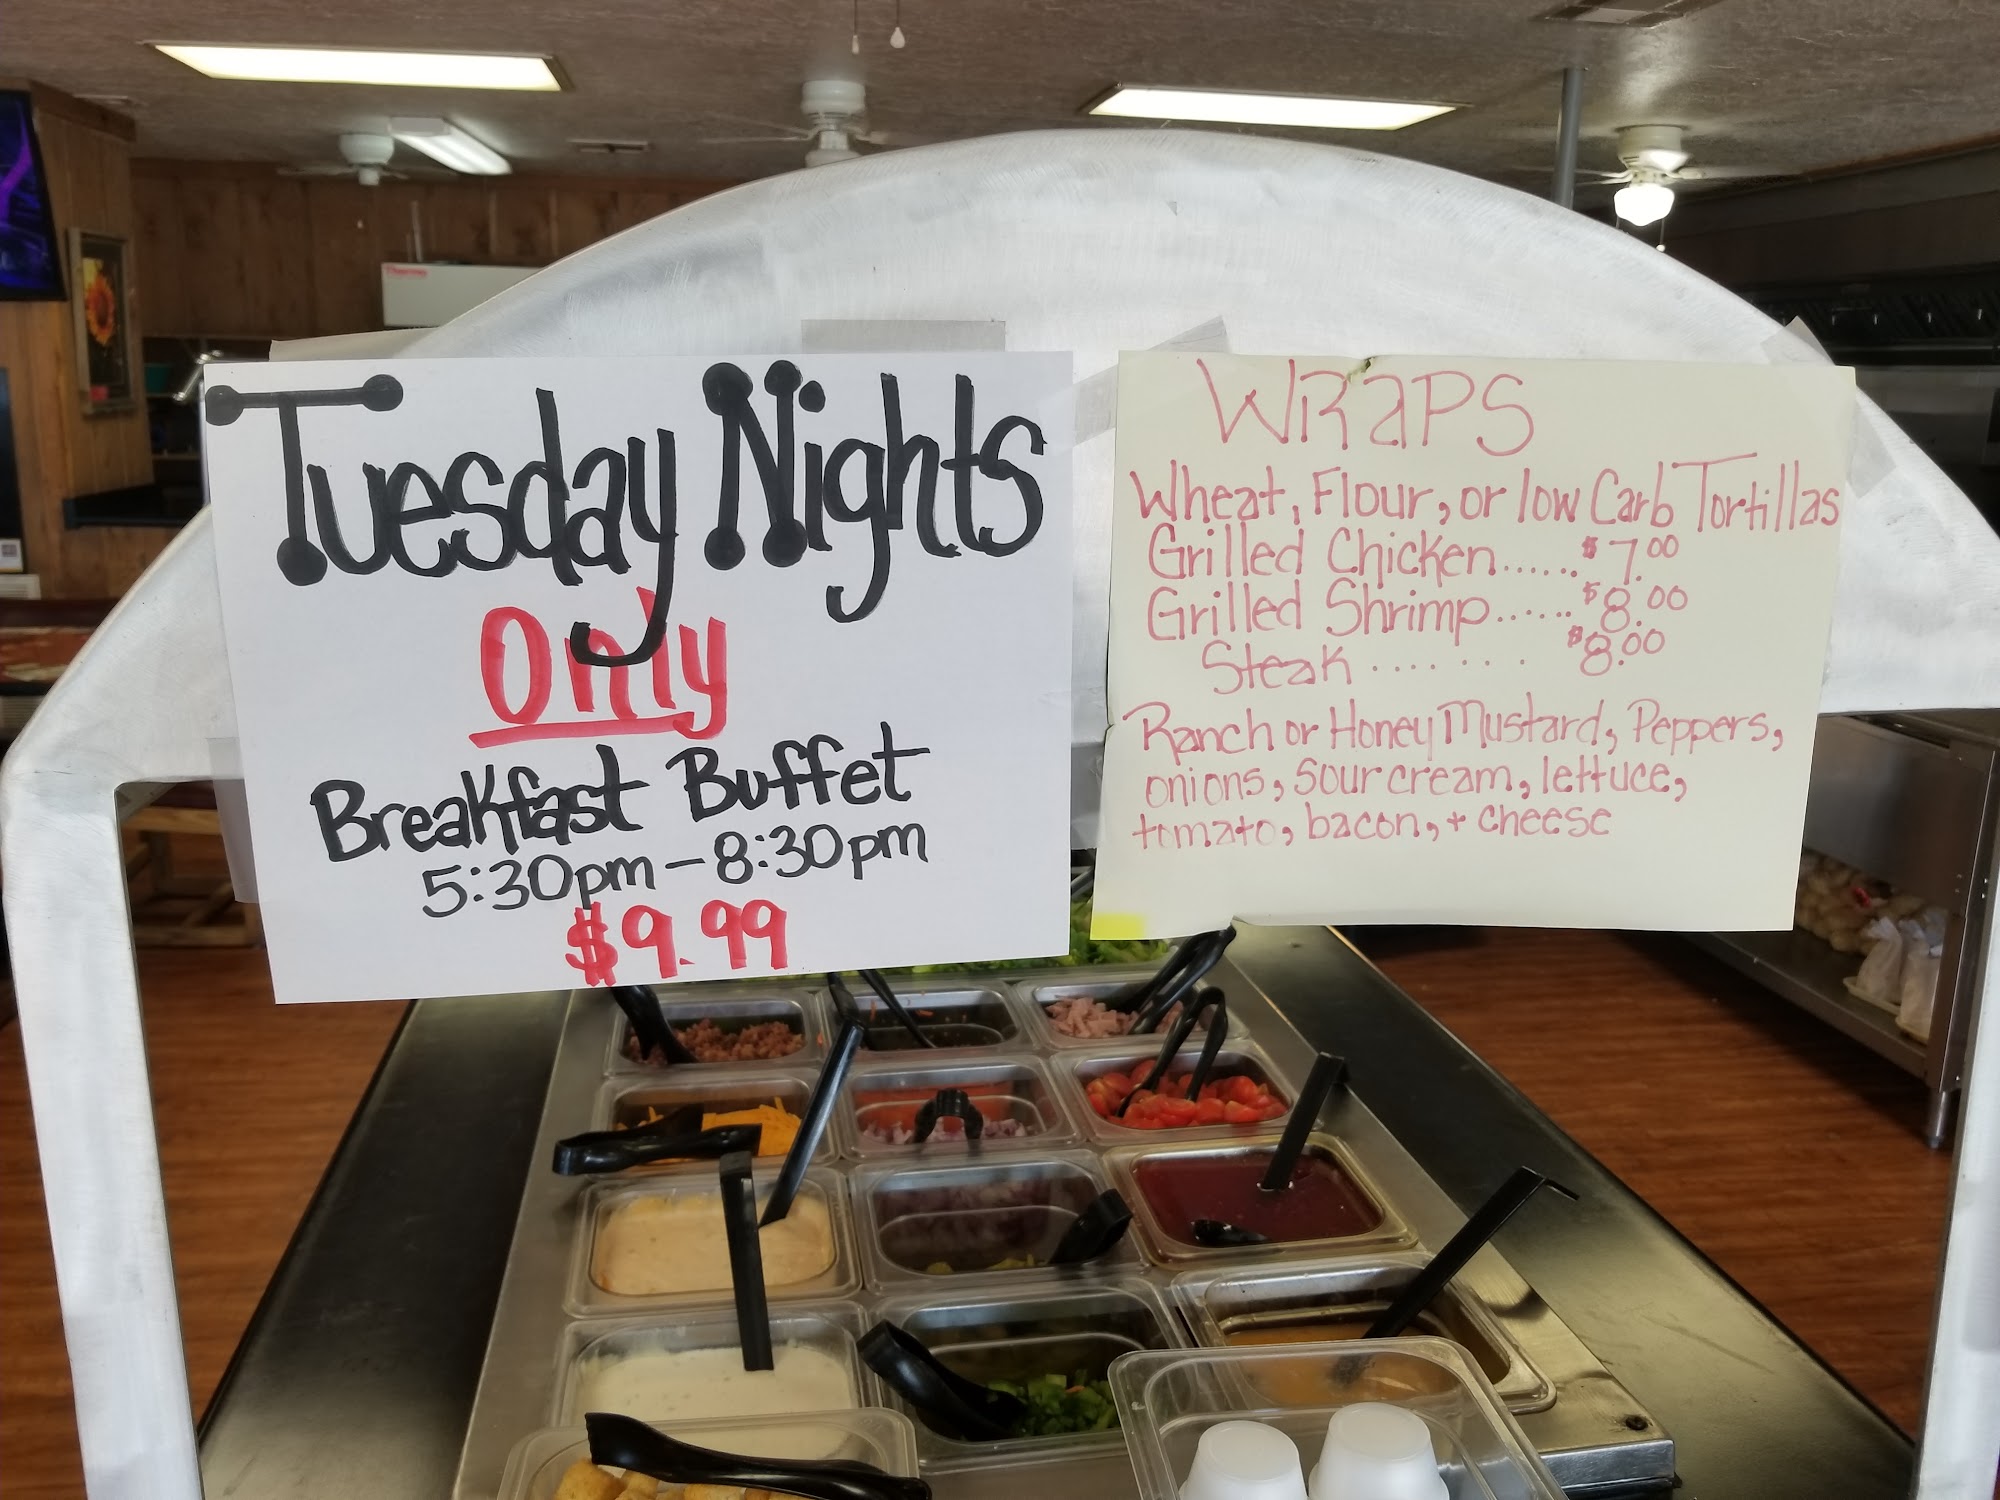 Thermo
Tuesday Nights
Only
Breakfast Buffet
5:30pm - 8:30pm
$9.99
WRaPS
Wheat, Flour, or low Carb Tortillas
Grilled Chicken...... $7.00
Grilled Shrimp...... $8.00
Steak ....... $8.00
Ranch or Honey Mustard, Peppers,
onions, sour cream, lettuce,
tomato, bacon, + cheese